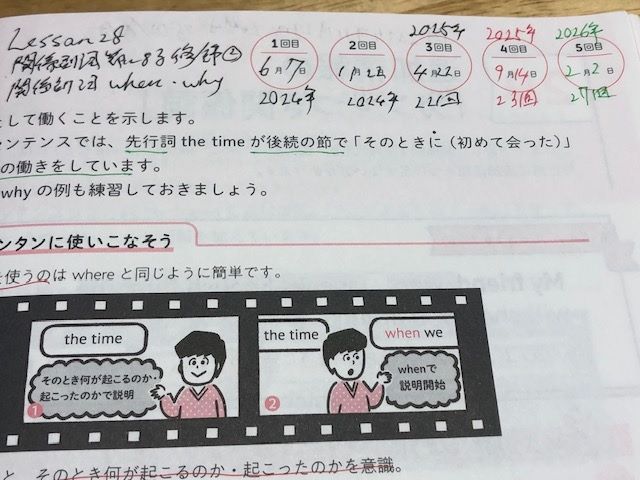 Lesson 28
関係副詞節による修飾②
関係副詞 when・why
1回目 2回目 3回目 4回目 5回目
2025年 2025年 2026年
6月7日 4月22日 9月14日 2月2日
2024年 2024年 22回 23回 27回
して働くことを示します。
ンテンスでは、先行詞 the time が後続の節で「そのときに（初めて会った）」
の働きをしています。
why の例も練習しておきましょう。
ンタンに使いこなそう
を使うのは where と同じように簡単です。
the time
そのとき何が起こるのか
起こったのかで説明
1
the time
when we
whenで
説明開始
2
と、そのとき何が起こるのか・起こったのかを意識。